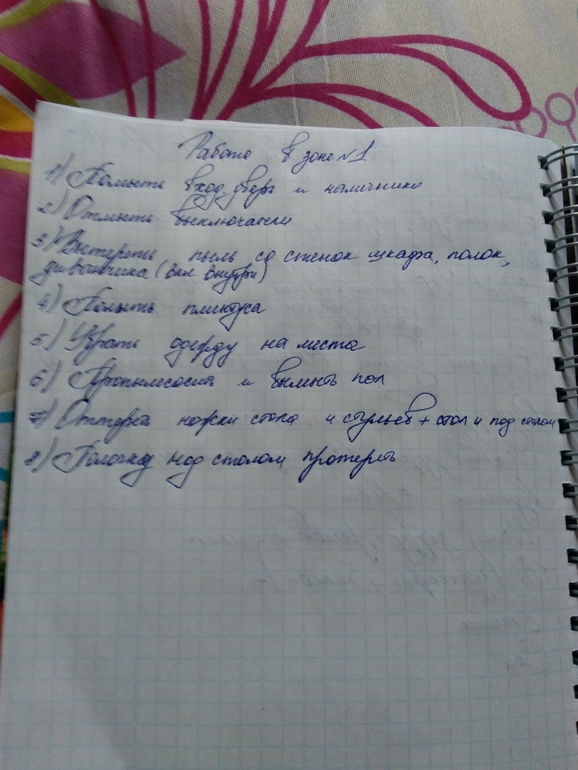 Работа в зоне №1
1) Помыть вход. дверь и наличники
2) Отмыть выключатели
3) Вытереть пыль со стенок шкафа, полок,
диванчика (вкл внутри)
4) Помыть плинтуса
5) Убрать одежду на места
6) Пропылесосить и вымыть пол
7) Оттереть ножки стола и стульев + стол и под столом
8) Полочку над столом протереть